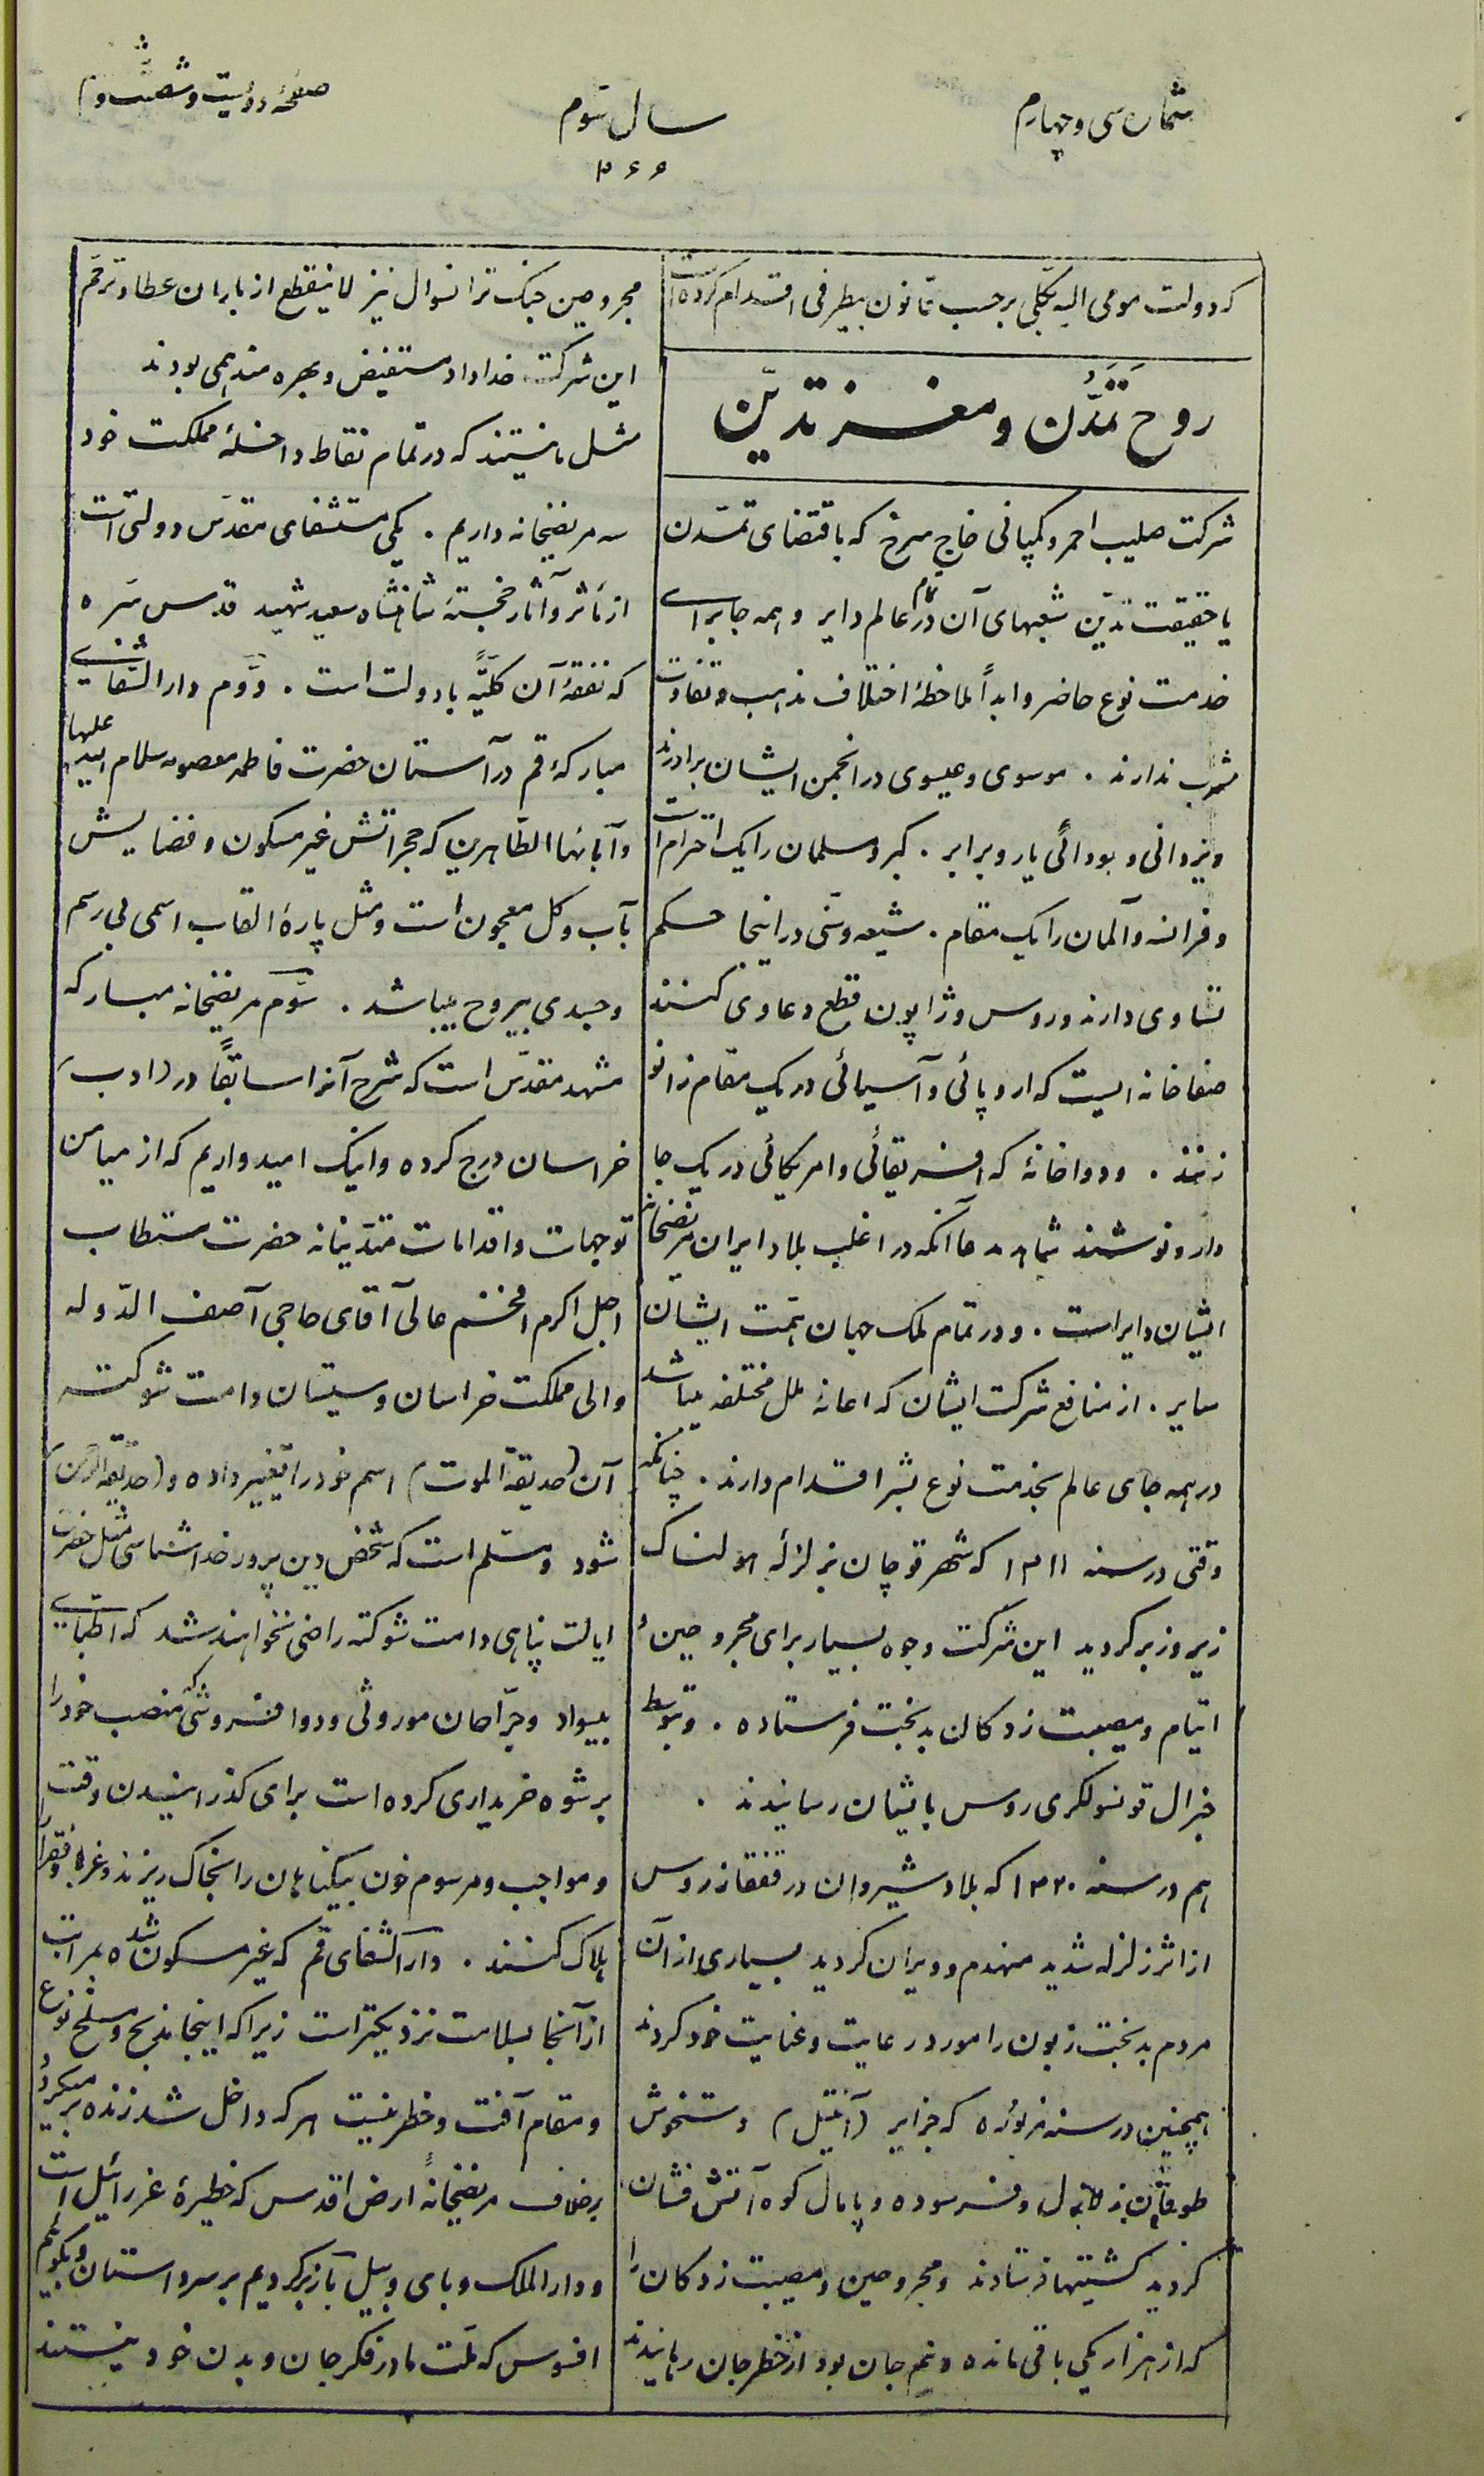 شماره سی و چهارم
سال سوم
صفحه دویست و شصت و
۲۶۶
که دولت مومی الیه بکلی برحسب قانون بیطرفی اقدام کرده است
روح تمَدُّن و مغز تدیّن
شرکت صلیب احمر و کمپانی خاج سرخ که باقتضای تمدّن
یا حقیقت تدیّن شعبهای آن در تمام عالم دایر و همه جا برای
خدمت نوع حاضر و ابداً ملاحظهٔ اختلاف مذهب و تفاوت
مشرب ندارند . موسوی و عیسوی در انجمن ایشان برادرند
و یزدانی و بودائی یار و برابر . گبر و مسلمان را یک احترام است
و فرانسه و آلمان را یک مقام . شیعه و سنّی در اینجا حکم
تساوی دارند و روس و ژاپون قطع دعاوی کنند
صفاخانه ایست که اروپائی و آسیائی در یک مقام زانو
زنند . و دواخانهٔ که افریقائی و امریکائی در یک جا
دارو نوشند شاهد ما آنکه در اغلب بلاد ایران مریضخانه
ایشان دایر است . و در تمام ملک جهان همّت ایشان
سایر . از منافع شرکت ایشان که اعانهٔ ملل مختلفه میباشد
در همه جای عالم بخدمت نوع بشر اقدام دارند . چنانکه
وقتی در سنه ۱۳۱۱ که شهر قوچان بزلزلهٔ هولناک
زیر و زبر گردید این شرکت وجوه بسیار برای مجروحین و
ایتام و مصیبت زدگان بدبخت فرستاده . و بتوسط
جنرال قونسولگری روس بایشان رسانیدند .
هم در سنه ۱۳۲۰ که بلاد شیروان در قفقاز روس
از اثر زلزله شدید منهدم و ویران گردید بسیاری از آن
مردم بدبخت زبون را مورد رعایت و عنایت خود کردند
همچنین در سنه مزبوره که جزایر (آنتیل) دستخوش
طوفان و فرسوده و پامال کوه آتش فشان
گردید کشتیها فرستادند و مجروحین و مصیبت زدگان را
که از هزار یکی باقی مانده و نیم جان بود از خطر جان رهانیدند
مجروحین جنگ ترانسوال نیز لاینقطع از باران عطا و ترحّم
این شرکت خداداد مستفیض و بهره مند همی بودند
مثل ما نیستند که در تمام نقاط داخلهٔ مملکت خود
سه مریضخانه داریم . یکی مستشفای مقدس دولتی است
از مآثر و آثار خجستهٔ شاهنشاه سعید شهید قدس سّره
که نفقهٔ آن کلیّةً با دولت است . دوّم دارالشفای
مبارکهٔ قم در آستان حضرت فاطمه معصومه سلام الله علیها
و آبائها الطّاهرین که حجراتش غیر مسکون و فضایش
بآب و گل معجون است و مثل پارهٔ القاب اسمی بی رسم
و جسدی بیروح میباشد . سّوم مریضخانه مبارکه
مشهد مقدّس است که شرح آنرا سابقاً در (ادب)
خراسان درج کرده و اینک امیدواریم که از میامن
توجهات و اقدامات متدّینانه حضرت مستطاب
اجل اکرم افخم عالی آقای حاجی آصف الدّوله
والی مملکت خراسان و سیستان دامت شوکته
آن (حدیقة الموت) اسم خود را تغییر داده و (حدیقة الرضا)
شود و مسلّم است که شخص دین پرور خداشناسی مثل حضرت
ایالت پناهی دامت شوکته راضی نخواهند شد که اطبّای
بیسواد و جرّاحان موروثی و دوافروشی که منصب خود را
برشوه خریداری کرده است برای گذرانیدن وقت
و مواجب و مرسوم خون بیگناهان را بخاک ریزند و غربا و فقرا
هلاک کنند . دارالشفای قم که غیر مسکون شده بمراتب
از آنجا بسلامت نزدیکتر است زیرا که اینجا مذبح و مسلخ نوع
و مقام آفت و خطر نیست هر که داخل شد زنده بر میگردد
برخلاف مریضخانهٔ ارض اقدس که خطیرهٔ عزرائیل است
و دارالملک وبای وبیل باز برگردیم بر سر داستان و بگوئیم
افسوس که ملّت ما در فکر جان و بدن خود نیستند